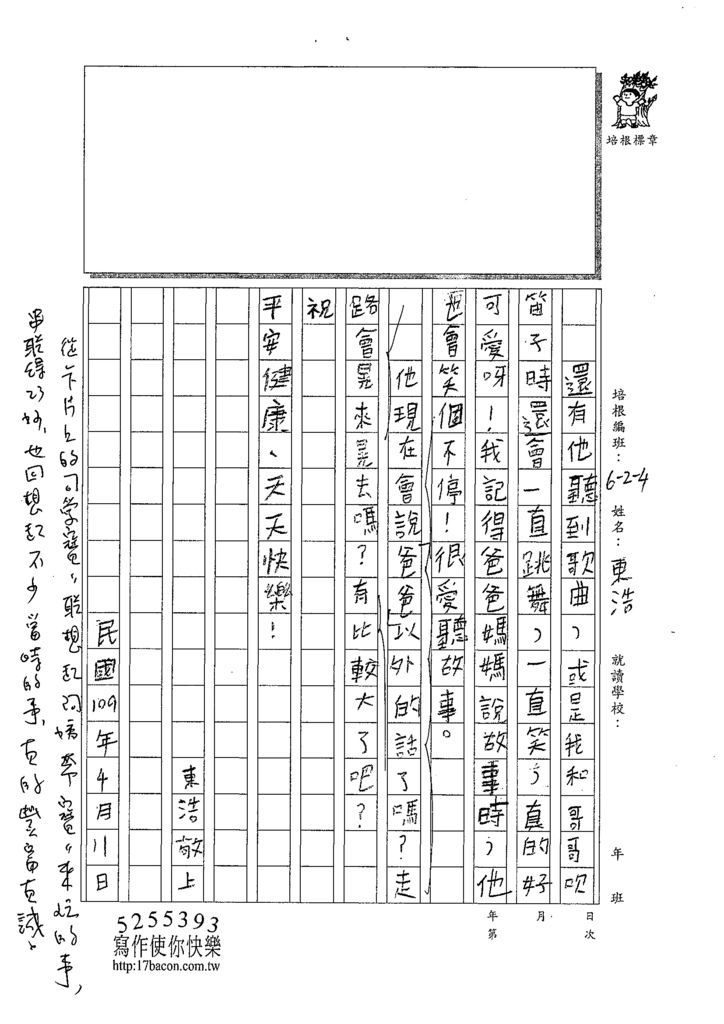 培根標章
培根編班：6-2-4 姓名：東浩 就讀學校： 年 班
日次
月
年第
還有他聽到歌曲，或是我和哥哥吹
笛子時還會一直跳舞，一直笑，真的好
可愛呀！我記得爸爸媽媽說故事時，他
也會笑個不停！很愛聽故事。
他現在會說爸爸以外的話了嗎？走
路會晃來晃去嗎？有比較大了吧？
祝
平安健康、天天快樂！
東浩敬上
民國109年4月11日
從卡片上的
聯想起
來玩的事，
也回想起不少當時的事，真的豐富真誠。
5255393
寫作使你快樂
http:17bacon.com.tw